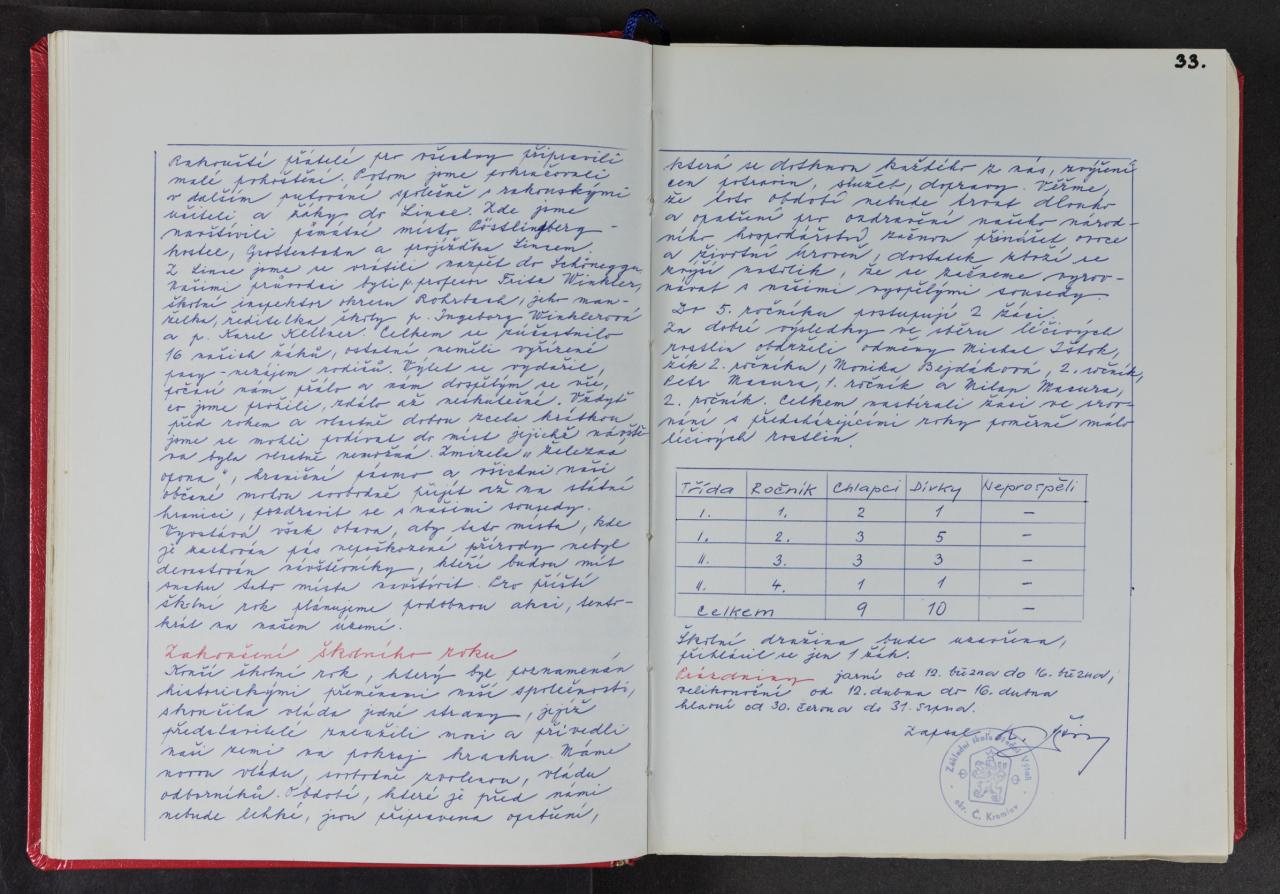 Rakouští přátelé pro všechny připravili
malé pohoštění. Potom jsme pokračovali
v dalším putování společně s rakouskými
učiteli a žáky do Lince. Zde jsme
navštívili památní místo Pöstlingberg -
kostel, Grottenbahn a projížďka Lincem.
Z Lince jsme se vrátili nazpět do Schönegg,
našimi průvodci byli p. profesor Fritz Winkler,
školní inspektor okresu Rohrbach, jeho man-
želka, ředitelka školy p. Ingeborg Winklerová
a p. Karel Kellner. Celkem se zúčastnilo
16 našich žáků, ostatní neměli vyřízené
pasy - nezájem rodičů. Výlet se vydařil,
počasí nám přálo a nám dospělým se vše,
co jsme prožili, zdálo až neskutečné. Vždyť
před rokem a vlastně dobou zcela krátkou
jsme se mohli podívat do míst jejichž návště-
va byla vlastně nemožná. Zmizela "železná
opona", hraniční pásmo a všichni naši
občané mohou svobodně přijít až na státní
hranici, pozdravit se s našimi sousedy.
Vyvstává však obava, aby tato místa, kde
je zachován pás nepoškozené přírody nebyl
devastován návštěvníky, kteří budou mít
snahu tato místa navštívit. Pro příští
školní rok plánujeme podobnou akci, tento-
krát na našem území.
Zakončení školního roku
Končí školní rok, který byl poznamenán
historickými přeměnami naší společnosti,
skončila vláda jedné strany, jejíž
představitelé zneužili moci a přivedli
naši zemi na pokraj krachu. Máme
novou vládu, svobodně zvolenou, vládu
odborníků. Období, které je před námi
nebude lehké, jsou připravena opatření,
33.
která se dotknou každého z nás, zvýšení
cen potravin, služeb, dopravy. Věřme,
že toto období nebude trvat dlouho
a opatření pro ozdravění našeho národ-
ního hospodářství začnou přinášet ovoce
a životní úroveň, dostatek zboží se
zvýší natolik, že se začneme vyrov-
návat s našimi vyspělými sousedy.
Do 5. ročníku postupují 2 žáci.
Za dobré výsledky ve sběru léčivých
rostlin obdrželi odměny Michal Ištok,
žák 2. ročníku, Monika Bejdáková, 2. ročník,
Petr Macura, 1. ročník a Milan Macura,
2. ročník. Celkem nasbírali žáci ve srov-
nání s předcházejícími roky poměrně málo
léčivých rostlin.
Třída Ročník Chlapci Dívky Neprospěli
I. 1. 2 1 -
I. 2. 3 5 -
II. 3. 3 3 -
II. 4. 1 1 -
Celkem 9 10 -
Školní družina bude uzavřena,
přihlásil se jen 1 žák.
Prázdniny jarní od 12. března do 16. března,
velikonoční od 12. dubna do 16. dubna
hlavní od 30. června do 31. srpna.
Zapsal
Základní škola
okr. Č. Krumlov